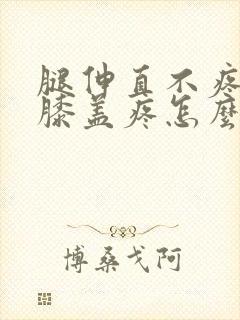 腿伸直不疼
膝盖疼怎麽
博桑戈阿